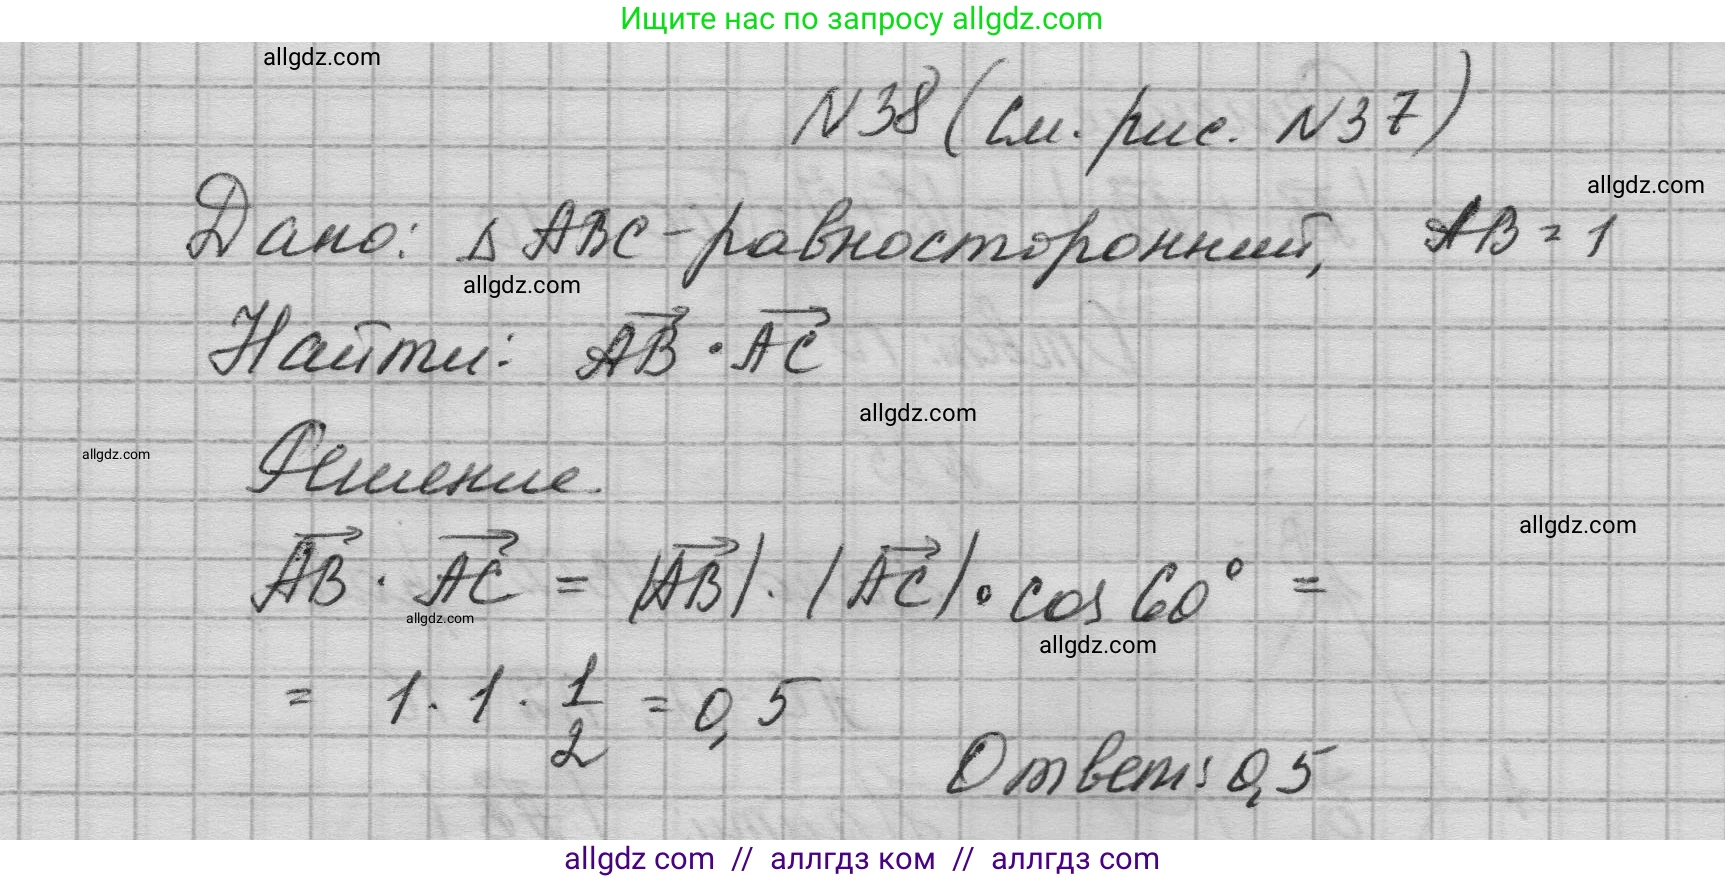 Ищите нас по запросу allgdz.com
allgdz.com
N38 (см. рис. N37)
allgdz.com
Дано: △ ABC - равносторонний, AB = 1
allgdz.com
Найти: AB · AC
allgdz.com
allgdz.com
Решение.
allgdz.com
AB · AC = |AB| · |AC| · cos 60° =
allgdz.com
allgdz.com
= 1 · 1 · 1/2 = 0,5
Ответ: 0,5
allgdz com // аллгдз ком // аллгдз com